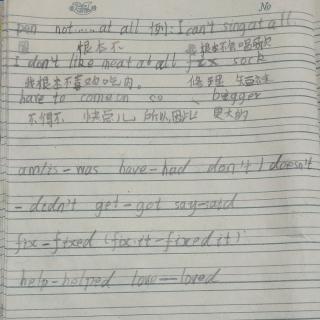 No
pen not......at all 例:I can't sing at all.
根本不 我根本不会唱歌
I don't like meat at all fix sock
我根本不喜欢吃肉。 修理 短袜
have to come on so bigger
不得不 快点儿 所以,因此 更大的
am/is-was have-had don't/doesn't
-didn't get-got say-said
fix-fixed (fix it-fixed it)
help-helped love-loved